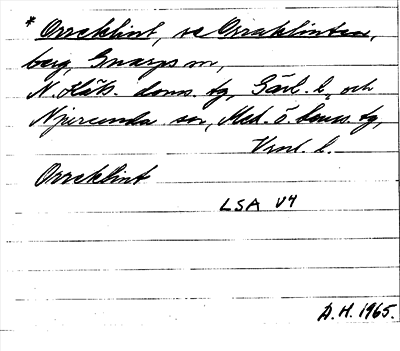 * Orreklint, se Orraklinten,
berg, Gnarps sn,
N. Häls. doms. tg, Gävl. l. och
Njurunda sn, Med. ö. doms. tg,
Vnl. l.
Orreklint
LSA V4
A.H. 1965.